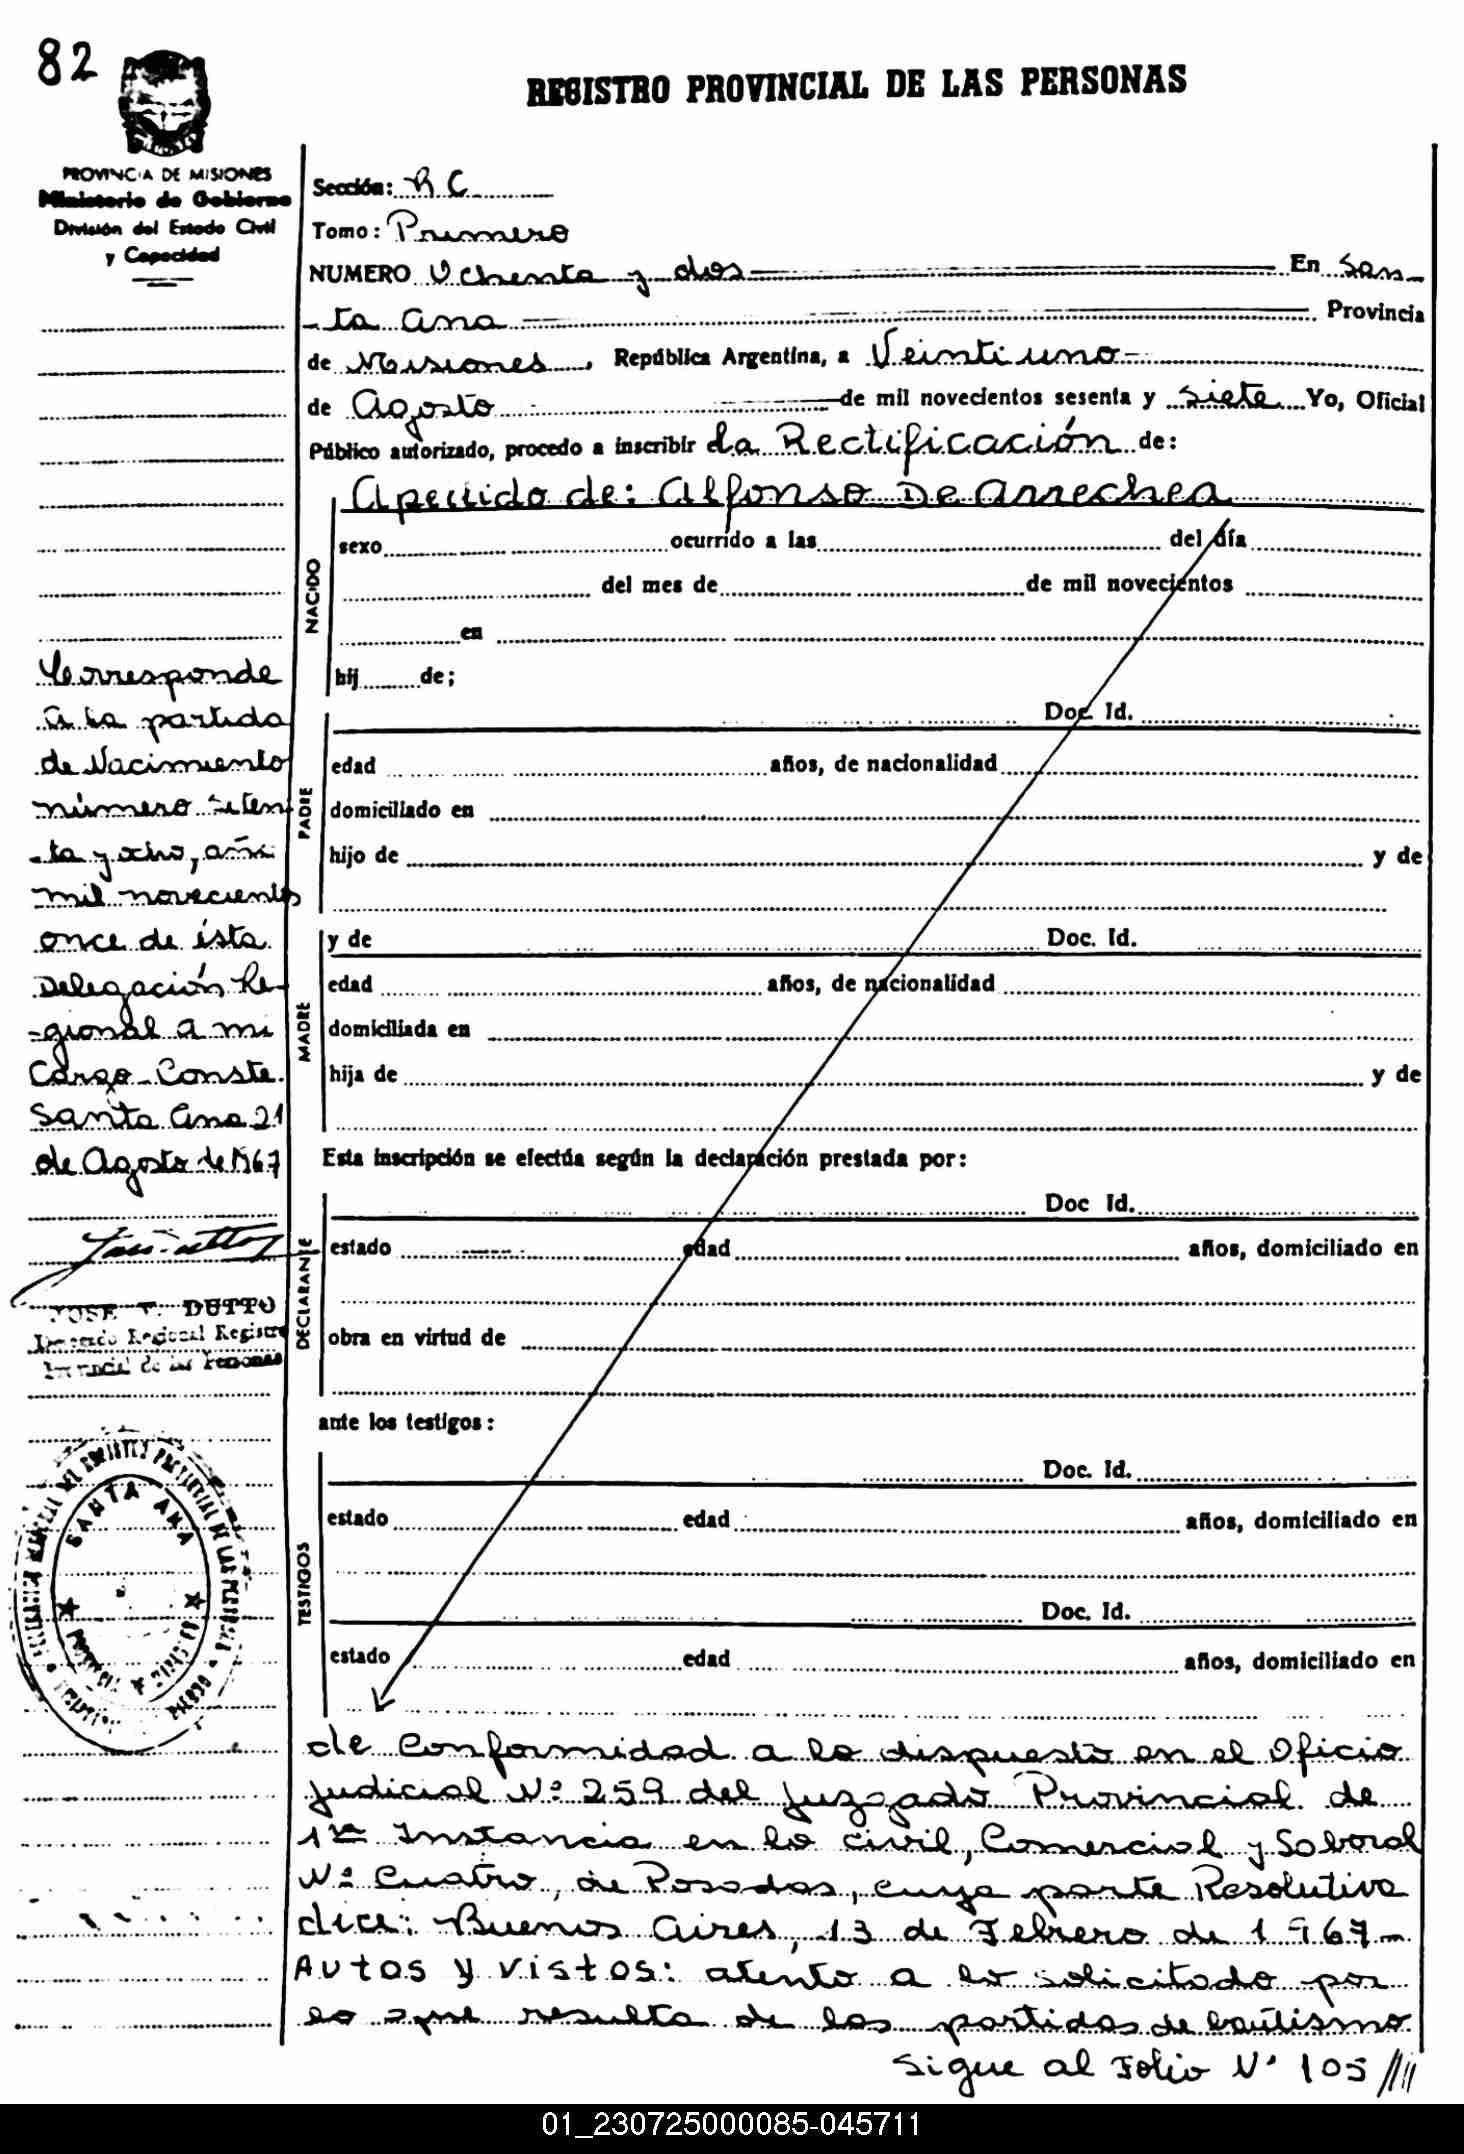 82
REGISTRO PROVINCIAL DE LAS PERSONAS
PROVINCIA DE MISIONES
Ministerio de Gobierno
División del Estado Civil
y Capacidad
Sección: RC
Tomo: Primero
NUMERO Ochenta y dos En San
-ta Ana Provincia
de Misiones, República Argentina, a Veintiuno
de Agosto de mil novecientos sesenta y siete Yo, Oficial
Público autorizado, procedo a inscribir la Rectificación de:
Apellido de: Alfonso De Arrechea
NACIDO
sexo ocurrido a las del día
del mes de de mil novecientos
en
hij de;
PADRE
Doc. Id.
edad años, de nacionalidad
domiciliado en
hijo de y de
MADRE
y de Doc. Id.
edad años, de nacionalidad
domiciliada en
hija de y de
Esta inscripción se efectúa según la declaración prestada por:
DECLARANTE
Doc Id.
estado edad años, domiciliado en
obra en virtud de
ante los testigos:
TESTIGOS
Doc. Id.
estado edad años, domiciliado en
Doc. Id.
estado edad años, domiciliado en
de conformidad a lo dispuesto en el Oficio
Judicial Nº 259 del Juzgado Provincial de
1ra Instancia en lo civil, Comercial y Laboral
Nº Cuatro, de Posadas, cuya parte Resolutiva
dice: Buenos Aires, 13 de Febrero de 1967-
Autos y vistos: atento a lo solicitado por
lo que resulta de las partidas de bautismo
Sigue al Folio Nº 105
Corresponde
a la partida
de Nacimiento
número seten
-ta y ocho, año
mil novecientos
once de ésta
Delegación Re-
-gional a mi
Cargo-Conste.
Santa Ana 21
de Agosto de 1967
JOSE V. DUTTO
Delegado Regional Registro
Provincial de las Personas
SANTA ANA
01_230725000085-045711